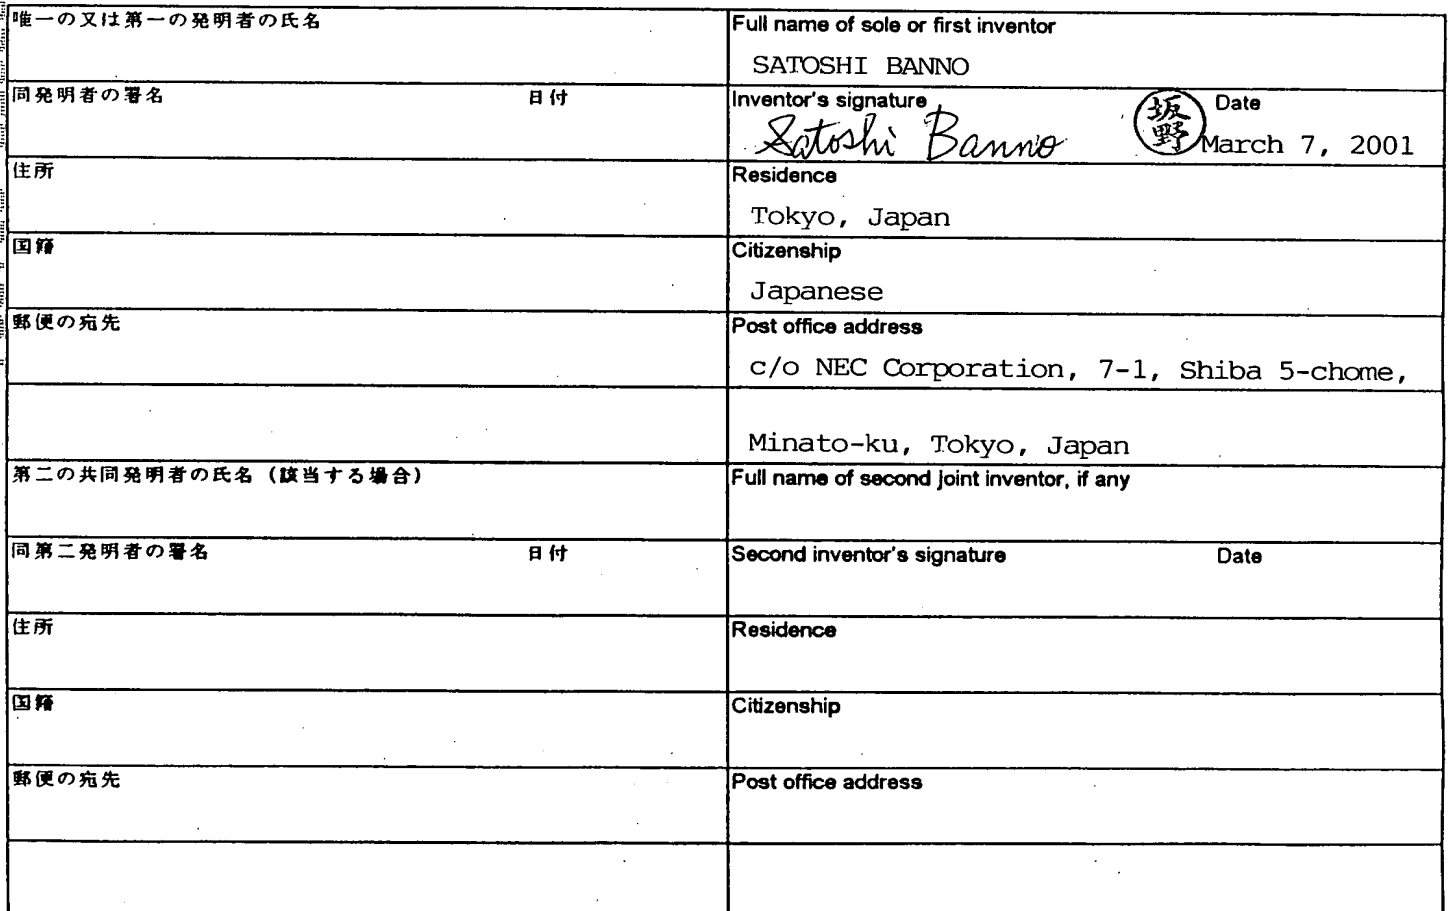 唯一の又は第一の発明者の氏名
Full name of sole or first inventor
SATOSHI BANNO
同発明者の署名 日付
Inventor's signature Date
Satoshi Banno 坂野 March 7, 2001
住所
Residence
Tokyo, Japan
国籍
Citizenship
Japanese
郵便の宛先
Post office address
c/o NEC Corporation, 7-1, Shiba 5-chome,
Minato-ku, Tokyo, Japan
第二の共同発明者の氏名（該当する場合）
Full name of second joint inventor, if any
同第二発明者の署名 日付
Second inventor's signature Date
住所
Residence
国籍
Citizenship
郵便の宛先
Post office address